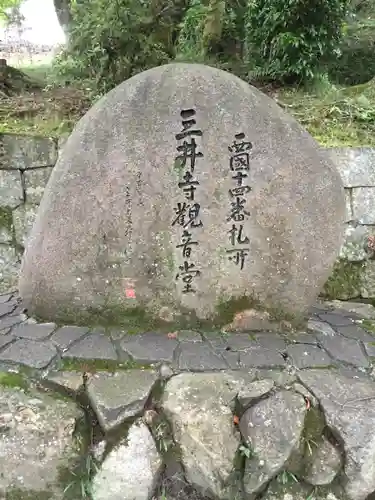 西國十四番札所
三井寺観音堂